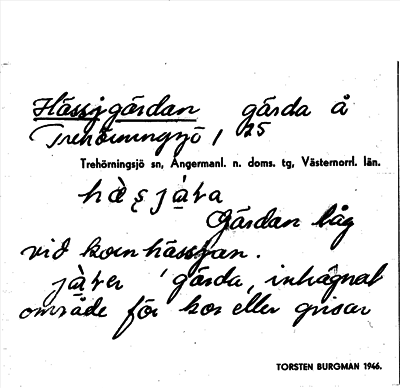 Hässjgärdan gärda å
Trehörningsjö 1/25
Trehörningsjö sn, Ångermanl. n. doms. tg, Västernorrl. län.
Gärdan låg
vid kornhässjan.
'gärda, inhägnat
område för kor eller grisar
TORSTEN BURGMAN 1946.